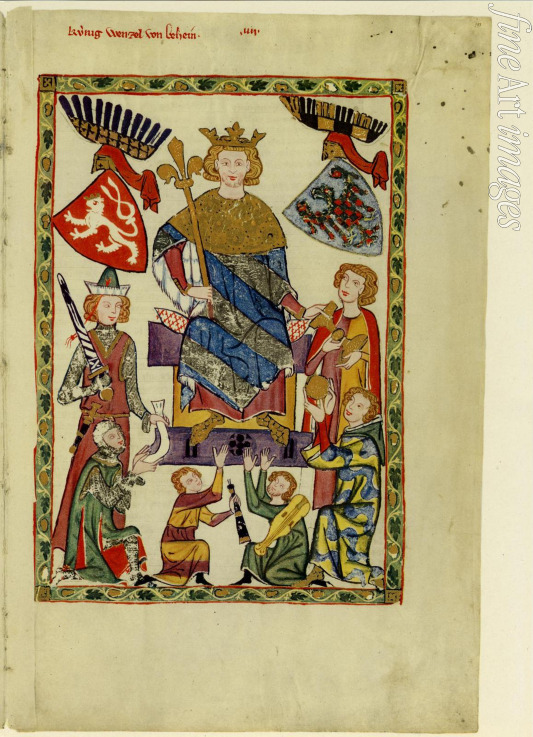 Kṽnig Wenzel von Behein.
.iiij.
fine art images